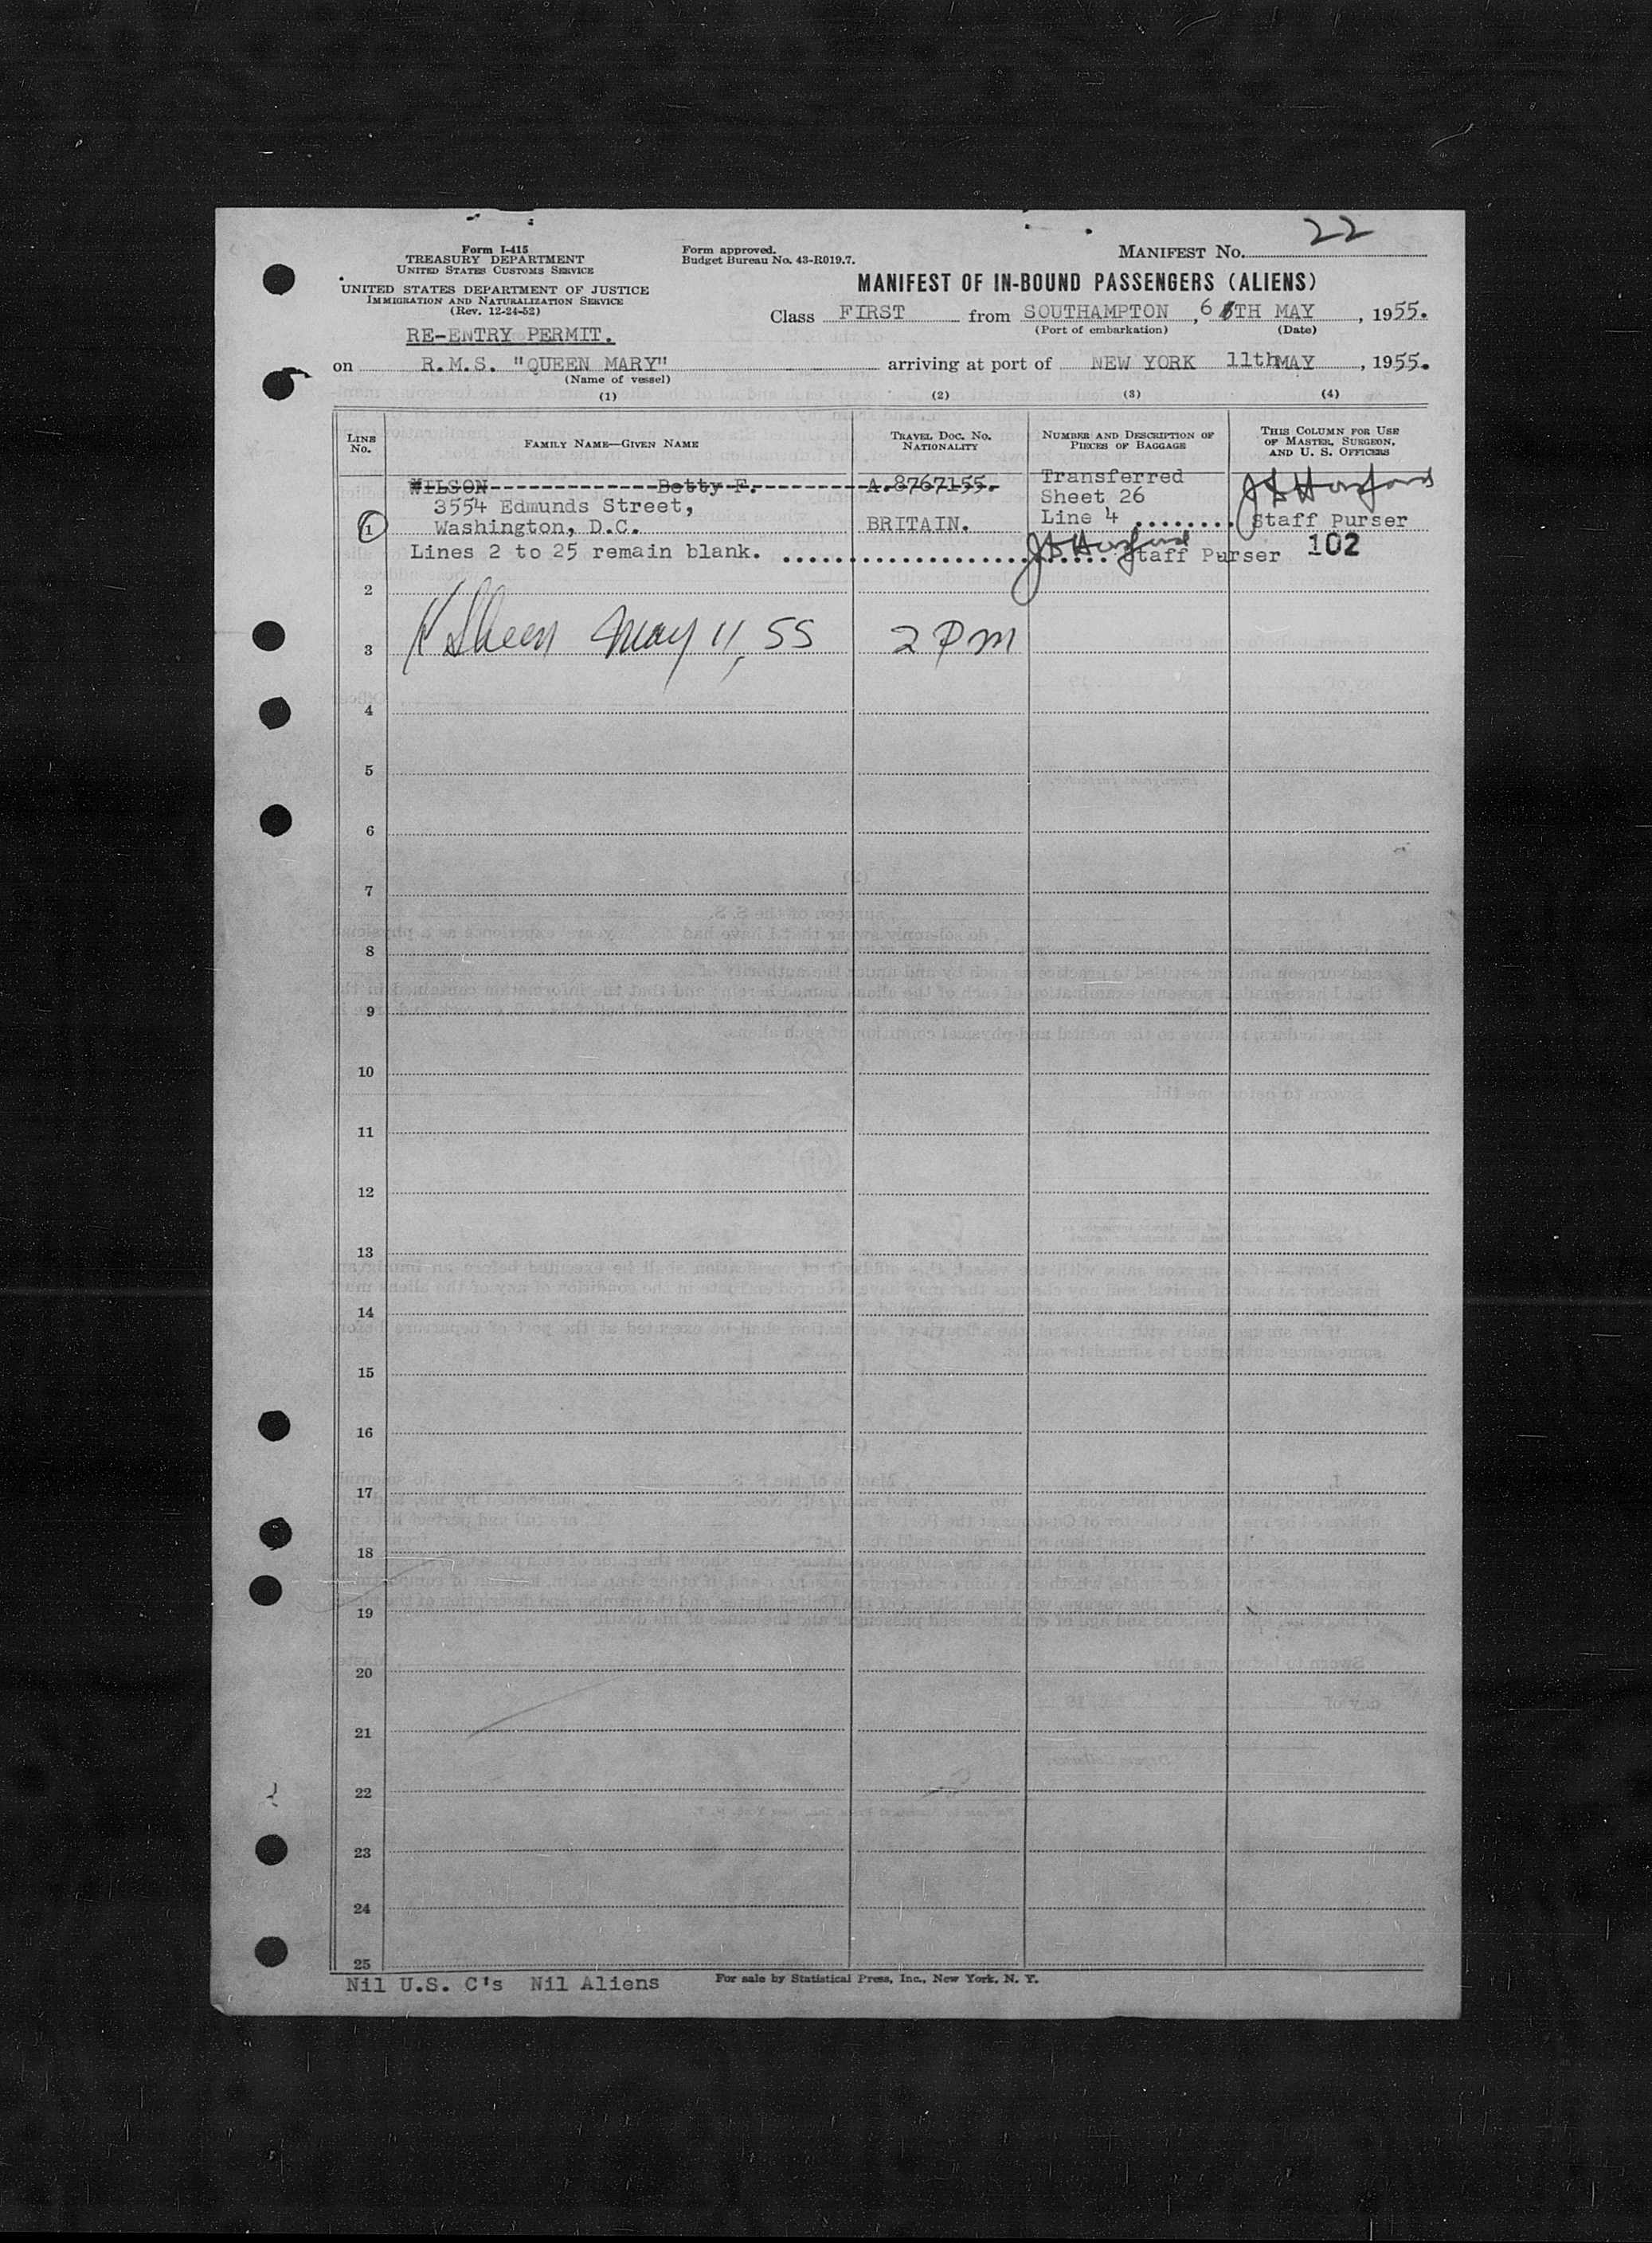 22
Form I-415
TREASURY DEPARTMENT
UNITED STATES CUSTOMS SERVICE
UNITED STATES DEPARTMENT OF JUSTICE
IMMIGRATION AND NATURALIZATION SERVICE
(Rev. 12-24-52)
RE-ENTRY PERMIT.
Form approved.
Budget Bureau No. 43-R019.7.
MANIFEST No.
MANIFEST OF IN-BOUND PASSENGERS (ALIENS)
Class FIRST from SOUTHAMPTON , 6 TH MAY , 1955.
(Port of embarkation) (Date)
on R.M.S. "QUEEN MARY" arriving at port of NEW YORK 11th MAY , 1955.
(Name of vessel)
(1) (2) (3) (4)
LINE No. FAMILY NAME—GIVEN NAME TRAVEL DOC. NO. NATIONALITY NUMBER AND DESCRIPTION OF PIECES OF BAGGAGE THIS COLUMN FOR USE OF MASTER, SURGEON, AND U. S. OFFICERS
WILSON-------------Betty F.---------A.8767155. Transferred
3554 Edmunds Street, Sheet 26
1 Washington, D.C. BRITAIN. Line 4 ........ Staff Purser
Lines 2 to 25 remain blank. ......................... Staff Purser 102
2
3 May 11, 55 2 PM
4
5
6
7
8
9
10
11
12
13
14
15
16
17
18
19
20
21
22
23
24
25
Nil U.S. C's Nil Aliens For sale by Statistical Press, Inc., New York, N. Y.